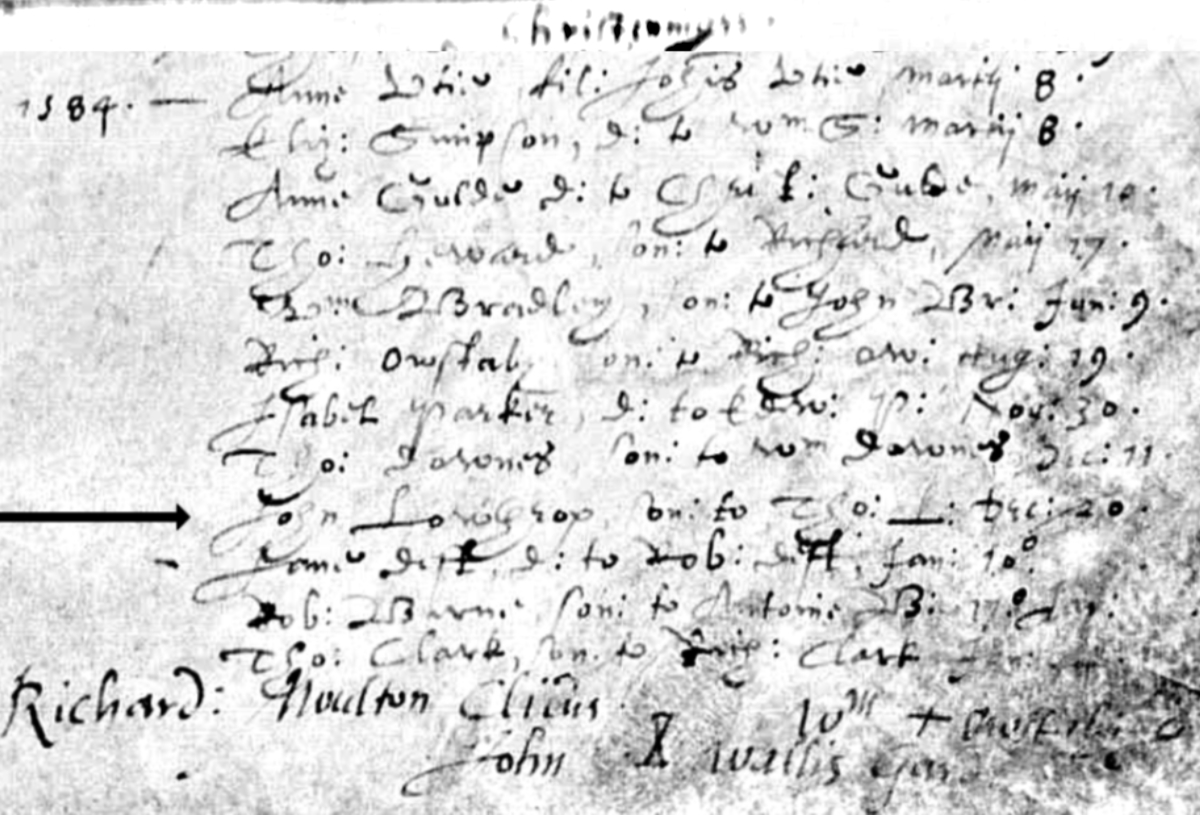 Christenings
1584. — Anne fil: Johīs Martij 8.
Eliz: Simpson, d: to wm S: Martij 8.
Anne Gulde d: to Gulde, Maij 10.
Tho: Heward, son: to Richard, Maij 17.
Bradley, son: to John Br: Jun: 9.
Rich: Owstaby son: to Rich: Ow: Aug: 19.
Isabel Parker, d: to Edw: P: Nov: 30.
Tho: Downes, son: to wm Downes Dec: 11.
John Lowthrop, son: to Tho: L: Dec: 20.
d: to Rob: Jan: 10.
Rob: Barne, son: to Antonie B: 17.
Tho: Clark, son: to Rich: Clark
Richard: Moulton Clicus wm +
John X Wallis Gar